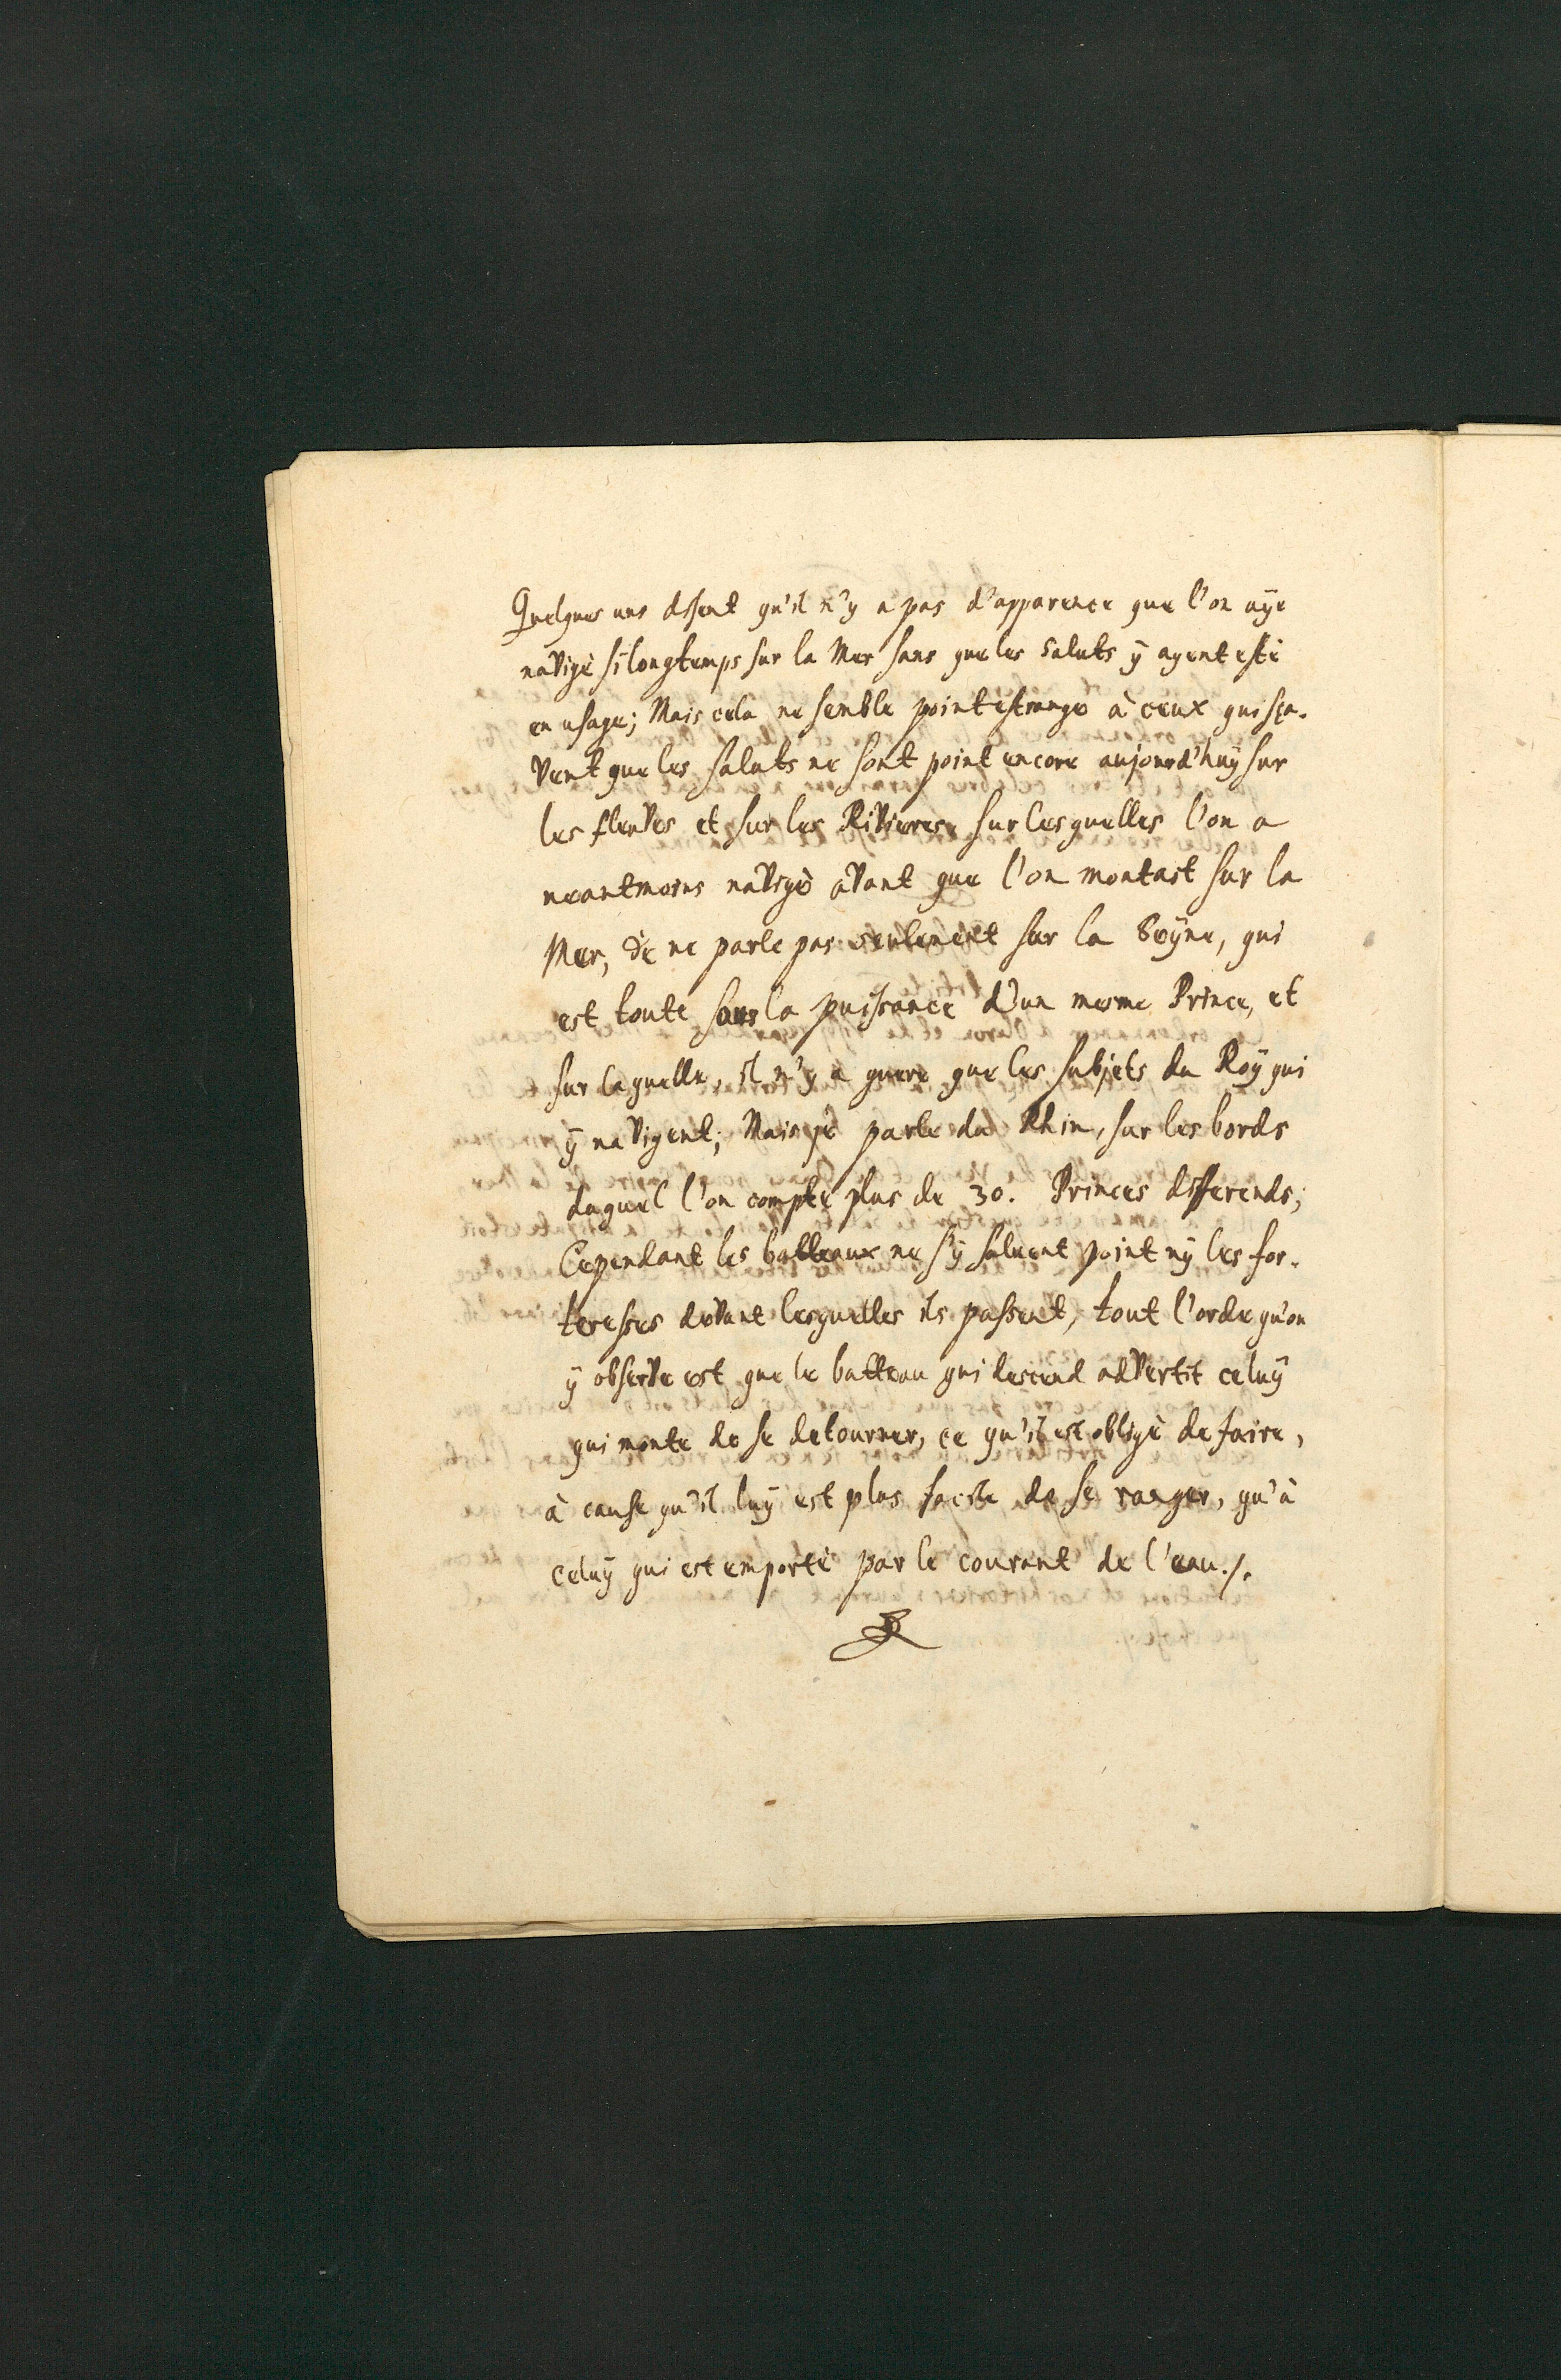 Quelques uns disent qu'il n'y a pas d'apparence que l'on aÿe
navigè si longtemps sur la Mer sans que les saluts ÿ ayent esté
en usage; Mais cela ne semble point estrange à ceux qui sça-
vent que les saluts ne sont point encore aujourd'huÿ sur
les fleuves et sur les Rivieres, sur lesquelles l'on a
neantmoins navigè avant que l'on montast sur la
Mer, Je ne parle pas seulement sur la Seÿne, qui
est toute sous la puissance d'un mesme Prince, et
sur laquelle, il n'y a guere que les subjets du Roÿ qui
ÿ navigent; Mais je parle du Rhin, sur les bords
duquel l'on compte plus de 30. Princes differends;
Cependant les batteaux ne s'ÿ saluent point nÿ les for-
teresses devant lesquelles ils passent, tout l'ordre qu'on
ÿ observe est que le batteau qui descend advertit celuÿ
qui monte de se detourner, ce qu'il est obligè de faire,
à cause qu'il luÿ est plus facile de se ranger, qu'à
celuÿ qui est emportè par le courant de l'eau./.